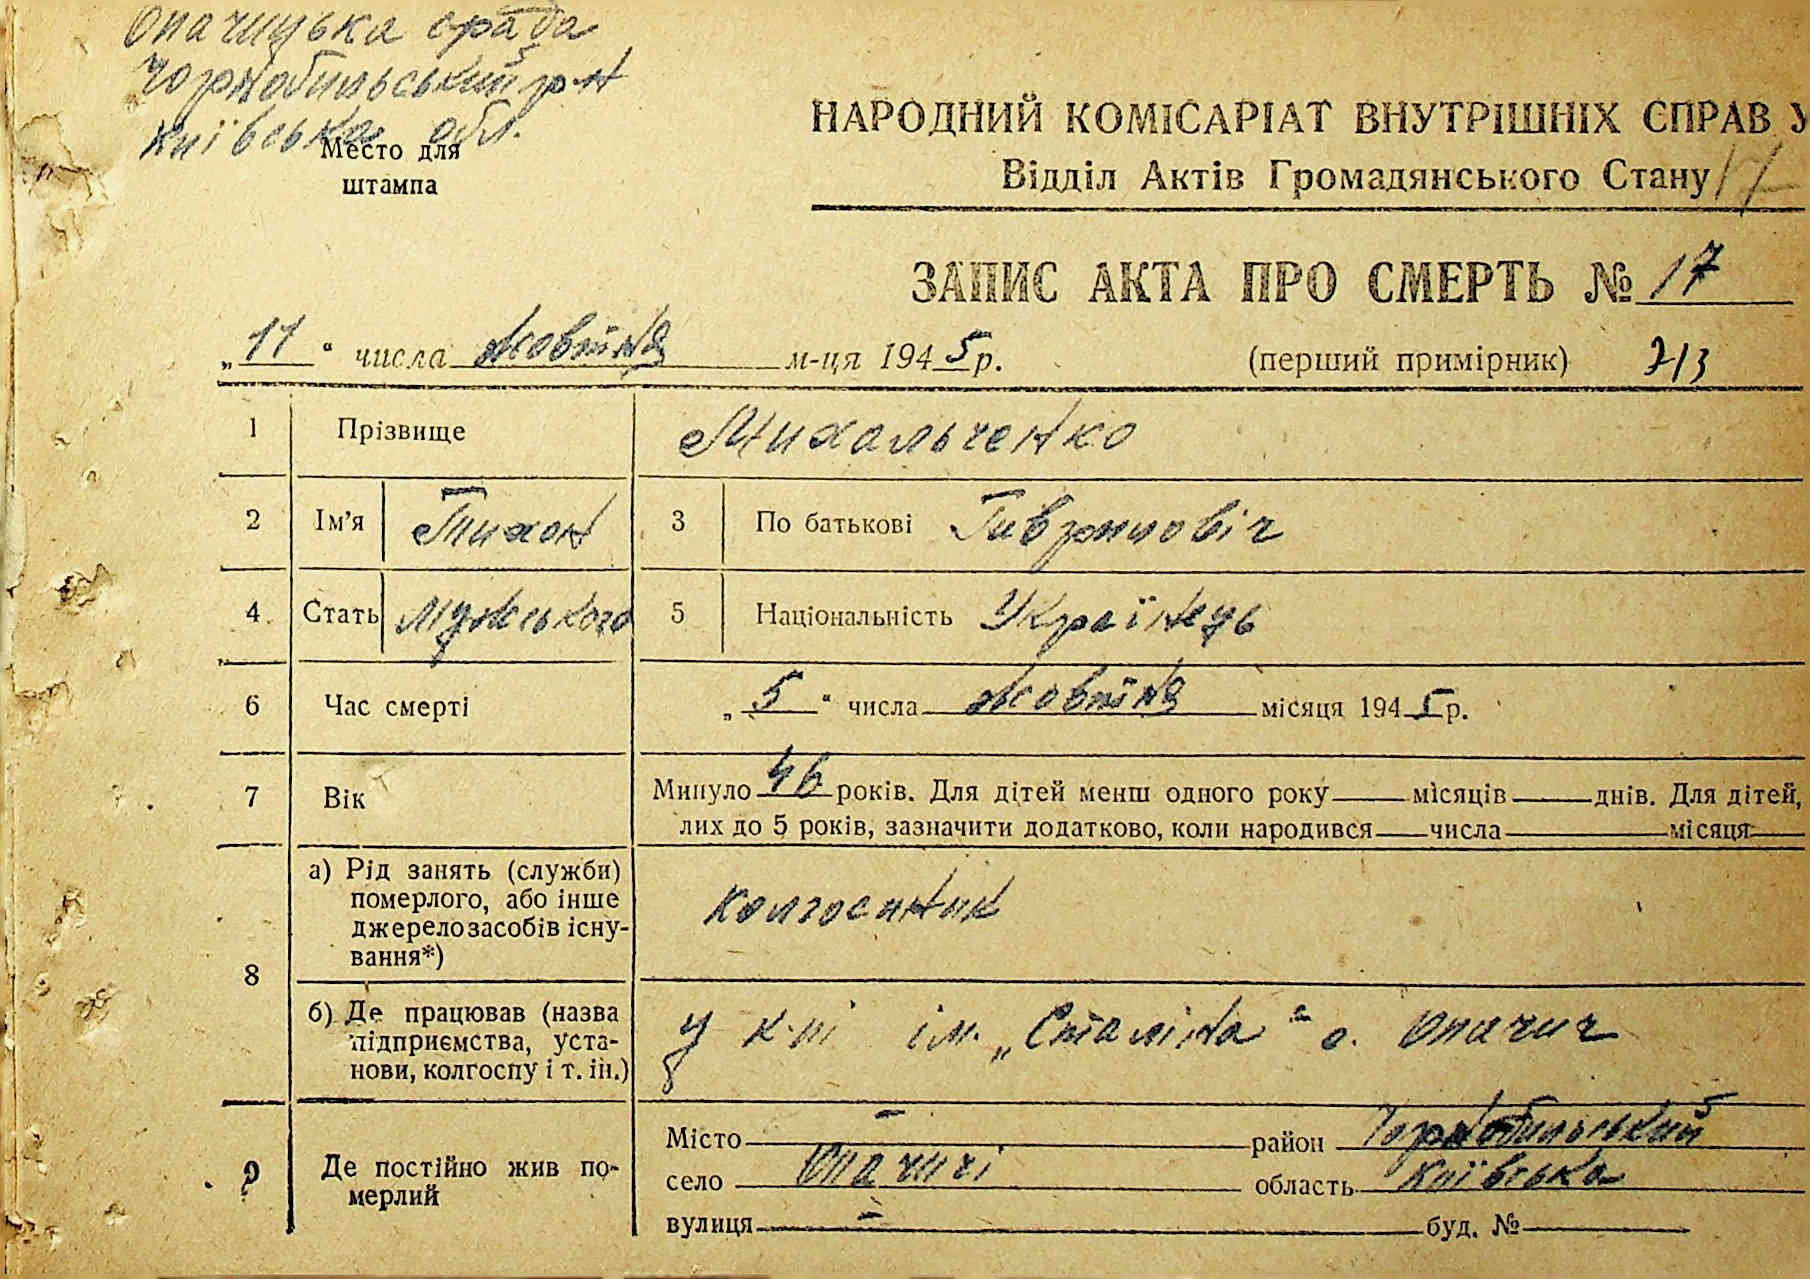 Опачицька с/рада
Чорнобильський р-н
Київська обл.
Место для
штампа
НАРОДНИЙ КОМІСАРІАТ ВНУТРІШНІХ СПРАВ У
Відділ Актів Громадянського Стану 17
ЗАПИС АКТА ПРО СМЕРТЬ № 17
„11“ числа жовтня м-ця 1945 р. (перший примірник) 213
1 Прізвище Михальченко
2 Ім'я Тихон 3 По батькові Гаврилович
4 Стать Мужського 5 Національність Українець
6 Час смерті „5“ числа жовтня місяця 1945 р.
7 Вік Минуло 46 років. Для дітей менш одного року місяців днів. Для дітей,
лих до 5 років, зазначити додатково, коли народився числа місяця
8 а) Рід занять (служби)
померлого, або інше
джерело засобів існу-
вання*) колгоспник
б) Де працював (назва
підприємства, уста-
нови, колгоспу і т. ін.) у к-пі ім. „Сталіна“ с. Опачич
9 Де постійно жив по-
мерлий
Місто — район Чорнобильський
село Опачичі область Київська
вулиця — буд. №